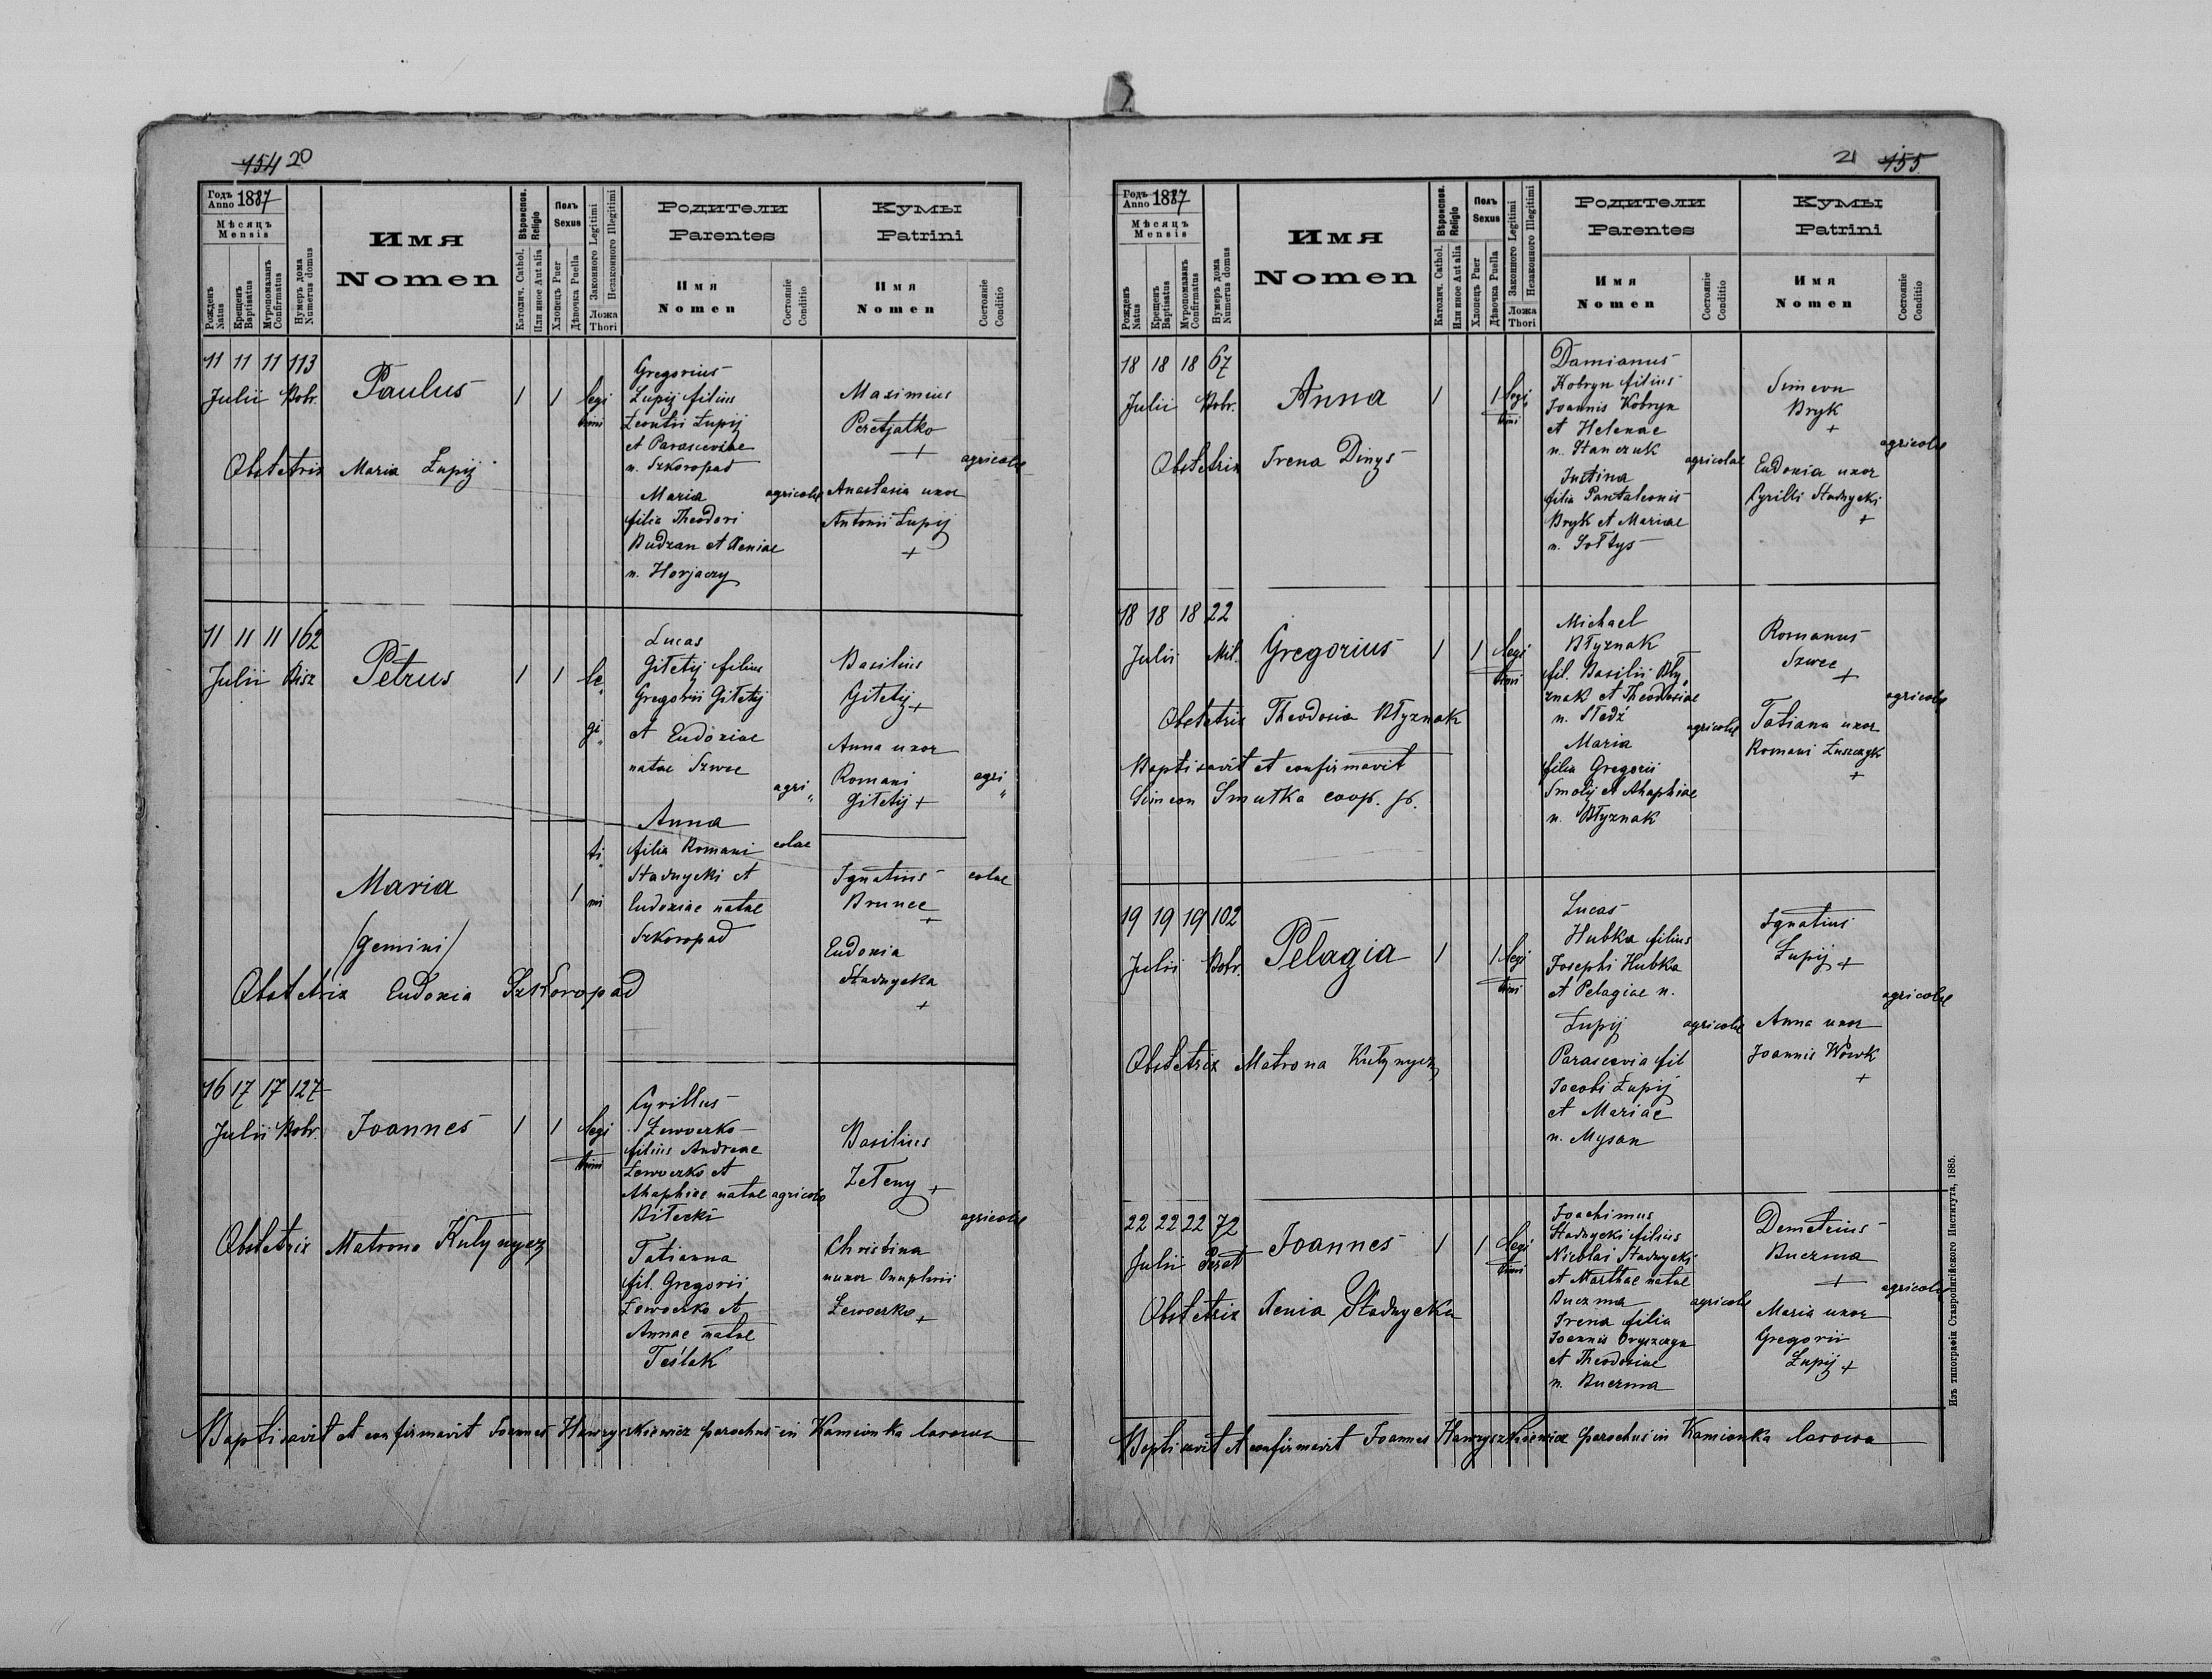 154 20
Годъ Anno 1887
Мѣсяцъ
Mensis
Рожденъ Natus
Крещенъ Baptisatus
Мѵропомазанъ Confirmatus
Нумеръ дома Numerus domus
Имя
Nomen
Вѣроиспов. Religio
Католич. Cathol.
Или иное Aut alia
Полъ
Sexus
Хлопецъ Puer
Дѣвочка Puella
Законного Legitimi
Незаконного Illegitimi
Ложа
Thori
Родители
Parentes
Имя
Nomen
Состояніе
Conditio
Кумы
Patrini
Имя
Nomen
Состояніе
Conditio
11 11 11 113
Julii Bobr.
Paulus
1 1 legi
timi
Gregorius
Łupij filius
Leontii Łupij
et Parasceviae
n. Szkoropad
Maria
filia Theodori
Budzan et Xeniae
n. Horjaczy
agricolae
Maximius
Peretjatko
+
Anastasia uxor
Antonii Łupij
+
agricolae
Obstetrix Maria Łupij
11 11 11 162
Julii Bisz
Petrus
1 1 le„
gi„
ti„
mi
Lucas
Giłetij filius
Gregorii Giłetij
et Eudoxiae
natae Szwec
Anna
filia Romani
Stadnycki et
Eudoxiae natae
Szkoropad
agri„
colae
Basilius
Giletij +
Anna uxor
Romani
Giletij +
agri„
colae
Maria
/gemini/
1
Ignatius
Brunec
+
Eudoxia
Stadnycka
+
Obstetrix Eudoxia Szkoropad
16 17 17 127
Julii Bobr.
Joannes
1 1 legi
timi
Cyrillus
Łewoczko
filius Andreae
Łewoczko et
Ahaphiae natae
Biłecki
Tatianna
fil. Gregorii
Łewoczko et
Annae natae
Teślak
agricolae
Basilius
Zełeny +
Christina
uxor Onuphrii
Łewoczko +
agricolae
Obstetrix Matrona Kułynycz
Baptisavit et confirmavit Joannes Hawryszkiewicz parochus in Kamionka lasowa
21 155
Годъ Anno 1887
Мѣсяцъ
Mensis
Рожденъ Natus
Крещенъ Baptisatus
Мѵропомазанъ Confirmatus
Нумеръ дома Numerus domus
Имя
Nomen
Вѣроиспов. Religio
Католич. Cathol.
Или иное Aut alia
Полъ
Sexus
Хлопецъ Puer
Дѣвочка Puella
Законного Legitimi
Незаконного Illegitimi
Ложа
Thori
Родители
Parentes
Имя
Nomen
Состояніе
Conditio
Кумы
Patrini
Имя
Nomen
Состояніе
Conditio
18 18 18 67
Julii Bobr.
Anna
1 1 legi
timi
Damianus
Kobryn filius
Joannis Kobryn
et Helenae
n. Stanczuk
Justina
filia Pantaleonis
Bryk et Mariae
n. Sołtys
agricolae
Simeon
Bryk
+
Eudoxia uxor
Cyrilli Stadnycki
+
agricolae
Obstetrix Irena Dinys
18 18 18 22
Julii Mil.
Gregorius
1 1 legi
timi
Michael
Błyznak
fil. Basilii Bły„
znak et Theodosiae
n. Sledź
Maria
filia Gregorii
Smolij et Ahaphiae
n. Błyznak
agricolae
Romanus
Szwec
+
Tatiana uxor
Romani Łuszczyk
+
agricolae
Obstetrix Theodosia Błyznak
Baptisavit et confirmavit
Simeon Smutka coop. p.
19 19 19 102
Julii Bobr.
Pelagia
1 1 legi
timi
Lucas
Hubka filius
Josephi Hubka
et Pelagiae n.
Łupij
Parascevia fil
Jacobi Łupij
et Mariae
n. Mysan
agricolae
Ignatius
Łupij +
Anna uxor
Joannis Wowk
+
agricolae
Obstetrix Matrona Kułynycz
22 22 22 72
Julii Seret
Joannes
1 1 legi
timi
Joachimus
Stadnycki filius
Nicolai Stadnycki
et Marthae natae
Buczma
Irena filia
Joannis Oryszczyn
et Theodosiae
n. Buczma
agricolae
Demetrius
Buczma
+
Maria uxor
Gregorii
Łupij +
agricolae
Obstetrix Xenia Stadnycka
Baptisavit et confirmavit Joannes Hawryszkiewicz parochus in Kamionka lasowa
Изъ типографіи Ставропигійского Института, 1885.